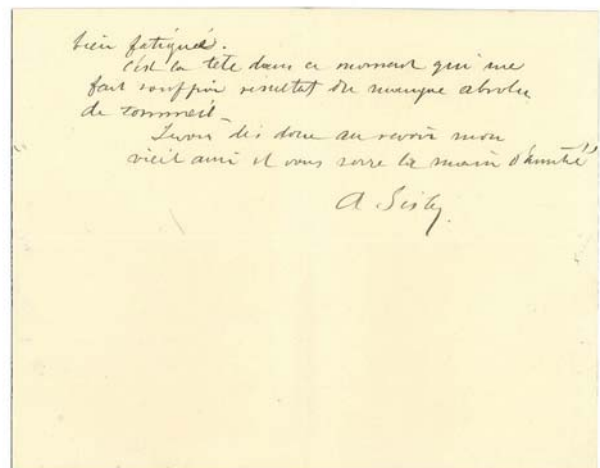 bien fatigué.
c'est la tête dans ce moment qui me
fait souffrir résultat du manque absolu
de sommeil –
dis donc au revoir mon
vieil ami et vous serre la main d'amitié
A Sisley.